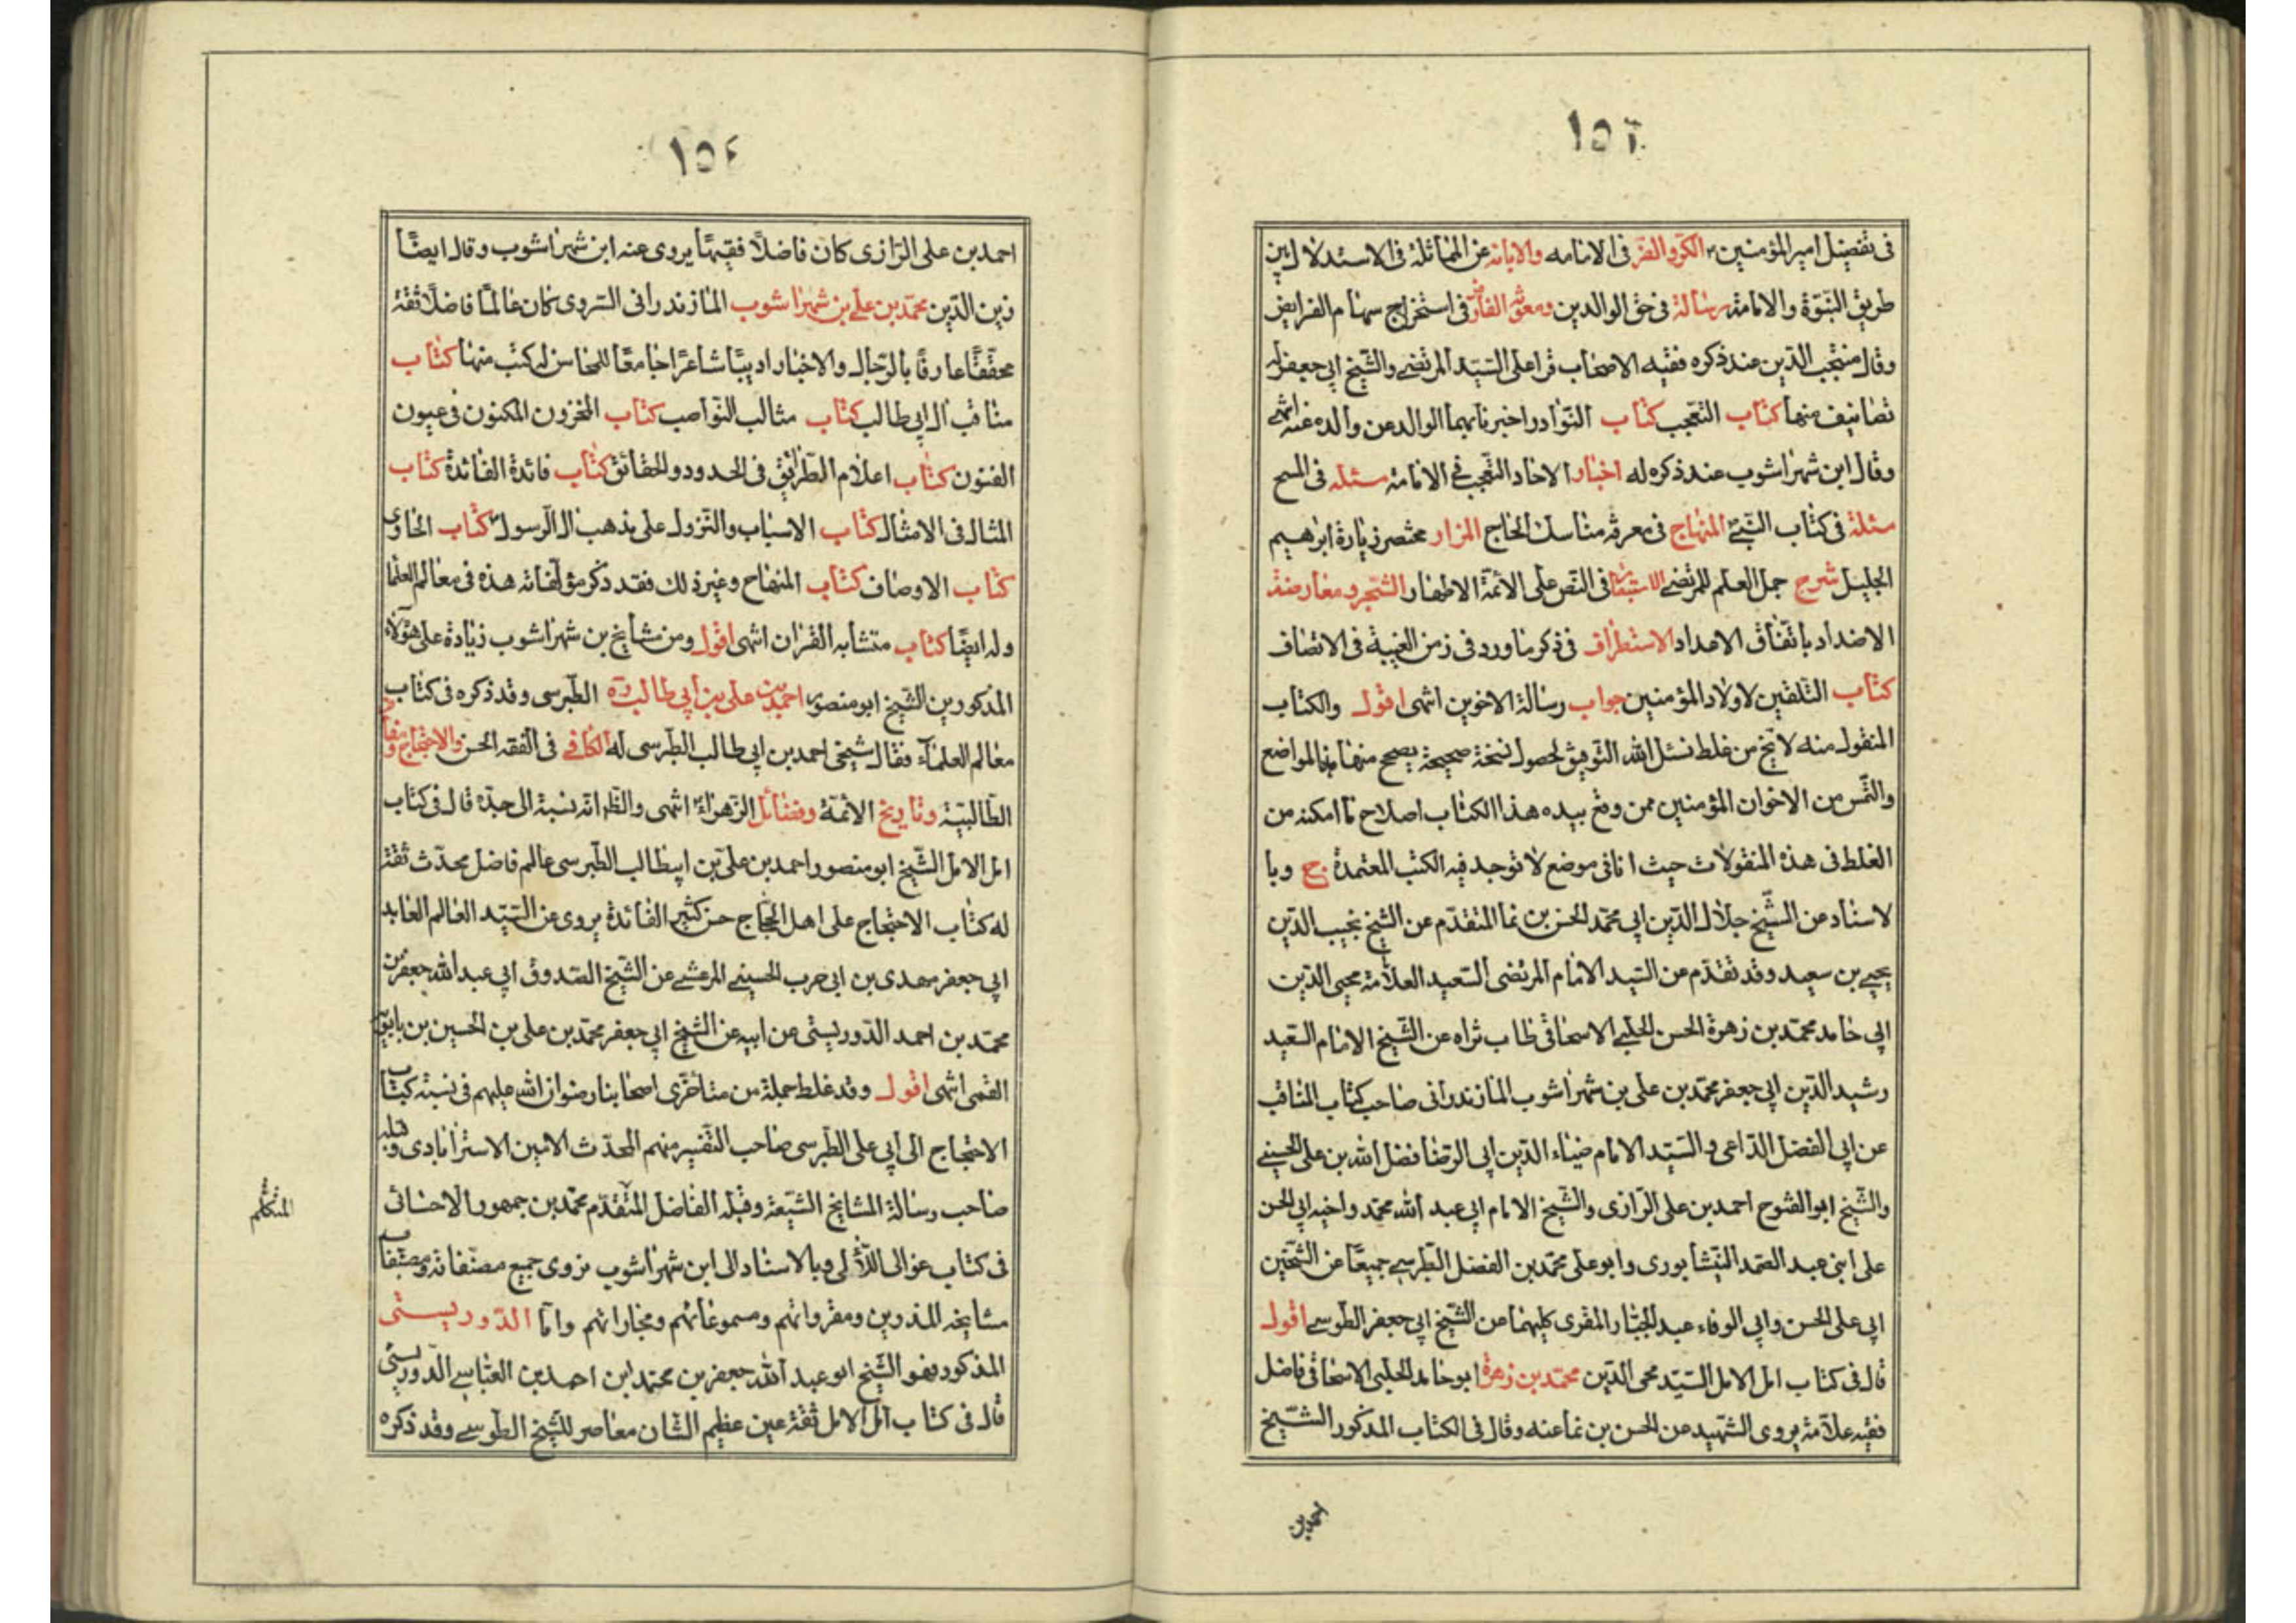 ١٥٣
فى تفضيل امير المؤمنين ٢ الكر والفر فى الامامه والابانه عن المماثلة فى الاستدلال بين
طريق النبوة والامامة رسالة فى حق الوالدين ومعونة الفارض فى استخراج سهام الفرايض
وقال منتجب الدين عند ذكره فقيه الاصحاب قرا على السيد المرتضى والشيخ ابى جعفر له
تصانيف منها كتاب التعجب كتاب النوادر اخبرنا بهما الوالد عن والده عنه انتهى
وقال ابن شهراشوب عند ذكره له اخبار الاحاد التعجب فى الامامة مسئلة فى المسح
مسئلة فى كتاب النبى المنهاج فى معرفة مناسك الحاج المزار مختصر زيارة ابرهيم
الجليل شرح جمل العلم للمرتضى الاستبصار فى النص على الائمة الاطهار الشجر ومعارضة
الاضداد باتفاق الاعداد الاستطراف فى ذكر ما ورد فى زمن الغيبة فى الانصاف
كتاب التلقين لاولاد المؤمنين جواب رسالة الاخوين انتهى اقول والكتاب
المنقول منه لا يخ من غلط نسئل الله التوفيق لحصول نسخة صحيحة يصحح منها المواضع
والتمس من الاخوان المؤمنين ممن وقع بيده هذا الكتاب اصلاح ما امكنه من
الغلط فى هذه المنقولات حيث انا فى موضع لا توجد فيه الكتب المعتمدة ح وبا
لاسناد عن الشيخ جلال الدين ابى محمد الحسن بن نما المتقدم عن الشيخ نجيب الدين
يحيى بن سعيد وقد تقدم عن السيد الامام المرتضى السعيد العلامة محيى الدين
ابى حامد محمد بن زهرة الحسن الحلبى الاسحاقى طاب ثراه عن الشيخ الامام السعيد
رشيد الدين ابى جعفر محمد بن على بن شهراشوب المازندرانى صاحب كتاب المناقب
عن ابى الفضل الداعى و السيد الامام ضياء الدين ابى الرضا فضل الله بن على الحسينى
والشيخ ابو الفتوح احمد بن على الرازى والشيخ الامام ابى عبد الله محمد واخيه ابى الحسن
على ابنى عبد الصمد النيشابورى وابو على محمد بن الفضل الطبرسى جميعا عن الشيخين
ابى على الحسن وابى الوفاء عبد الجبار المقرى كليهما عن الشيخ ابى جعفر الطوسى اقول
قال فى كتاب امل الامل السيد محى الدين محمد بن زهرة ابو حامد الحلبى الاسحاقى فاضل
فقيه علامة يروى الشهيد عن الحسن بن نما عنه وقال فى الكتاب المذكور الشيخ
احمد بن
١٥٤
احمد بن على الرازى كان فاضلا فقيها يروى عنه ابن شهراشوب وقال ايضا
زين الدين محمد بن على بن شهراشوب المازندرانى السروى كان عالما فاضلا ثقة
محققا عارفا بالرجال والاخبار اديبا شاعرا جامعا للمحاسن له كتب منها كتاب
مناقب ال ابى طالب كتاب مثالب النواصب كتاب المخزون المكنون فى عيون
الفنون كتاب اعلام الطرايق فى الحدود والحقائق كتاب فائدة الفائدة كتاب
المثال فى الامثال كتاب الاسباب والنزول على مذهب ال الرسول كتاب الحاوى
كتاب الاوصاف كتاب المنهاج وغير ذلك فقد ذكر مؤلفاته هذه فى معالم العلما
وله ايضا كتاب متشابه القران انتهى اقول ومن مشايخ بن شهراشوب زيادة على هؤلاء
المذكورين الشيخ ابو منصور احمد بن على بن ابى طالب ره الطبرسى وقد ذكره فى كتاب
معالم العلماء فقال شيخى احمد بن ابى طالب الطبرسى له الكافى فى الفقه الحسن والاحتجاج ومفاخر
الطالبية وتاريخ الائمة وفضائل الزهراء انتهى والظ انه نسبة الى جده قال فى كتاب
امل الامل الشيخ ابو منصور احمد بن على بن ابيطالب الطبرسى عالم فاضل محدث ثقة
له كتاب الاحتجاج على اهل اللجاج حسن كثير الفائدة يروى عن السيد العالم العابد
ابى جعفر مهدى بن ابى حرب الحسينى المرعشى عن الشيخ الصدوق ابى عبد الله جعفر بن
محمد بن احمد الدوريستى عن ابيه عن الشيخ ابى جعفر محمد بن على بن الحسين بن بابويه
القمى انتهى اقول وقد غلط جملة من متأخرى اصحابنا رضوان الله عليهم فى نسبة كتاب
الاحتجاج الى ابى على الطبرسى صاحب التفسير منهم المحدث الامين الاسترابادى وقبله
صاحب رسالة المشايخ الشيعة وقبله الفاضل المتقدم محمد بن جمهور الاحسائى
فى كتاب عوالى اللآلى وبالاسناد الى ابن شهراشوب نروى جميع مصنفاته ومصنفات
مشايخه المذورين ومقرواتهم ومسموعاتهم ومجازاتهم واما الدوريستى
المذكور فهو الشيخ ابو عبد الله جعفر بن محمد ابن احمد بن العباسى الدوريستى
قال فى كتاب امل الامل ثقة عين عظيم الشان معاصر للشيخ الطوسى وقد ذكره
المتكلم